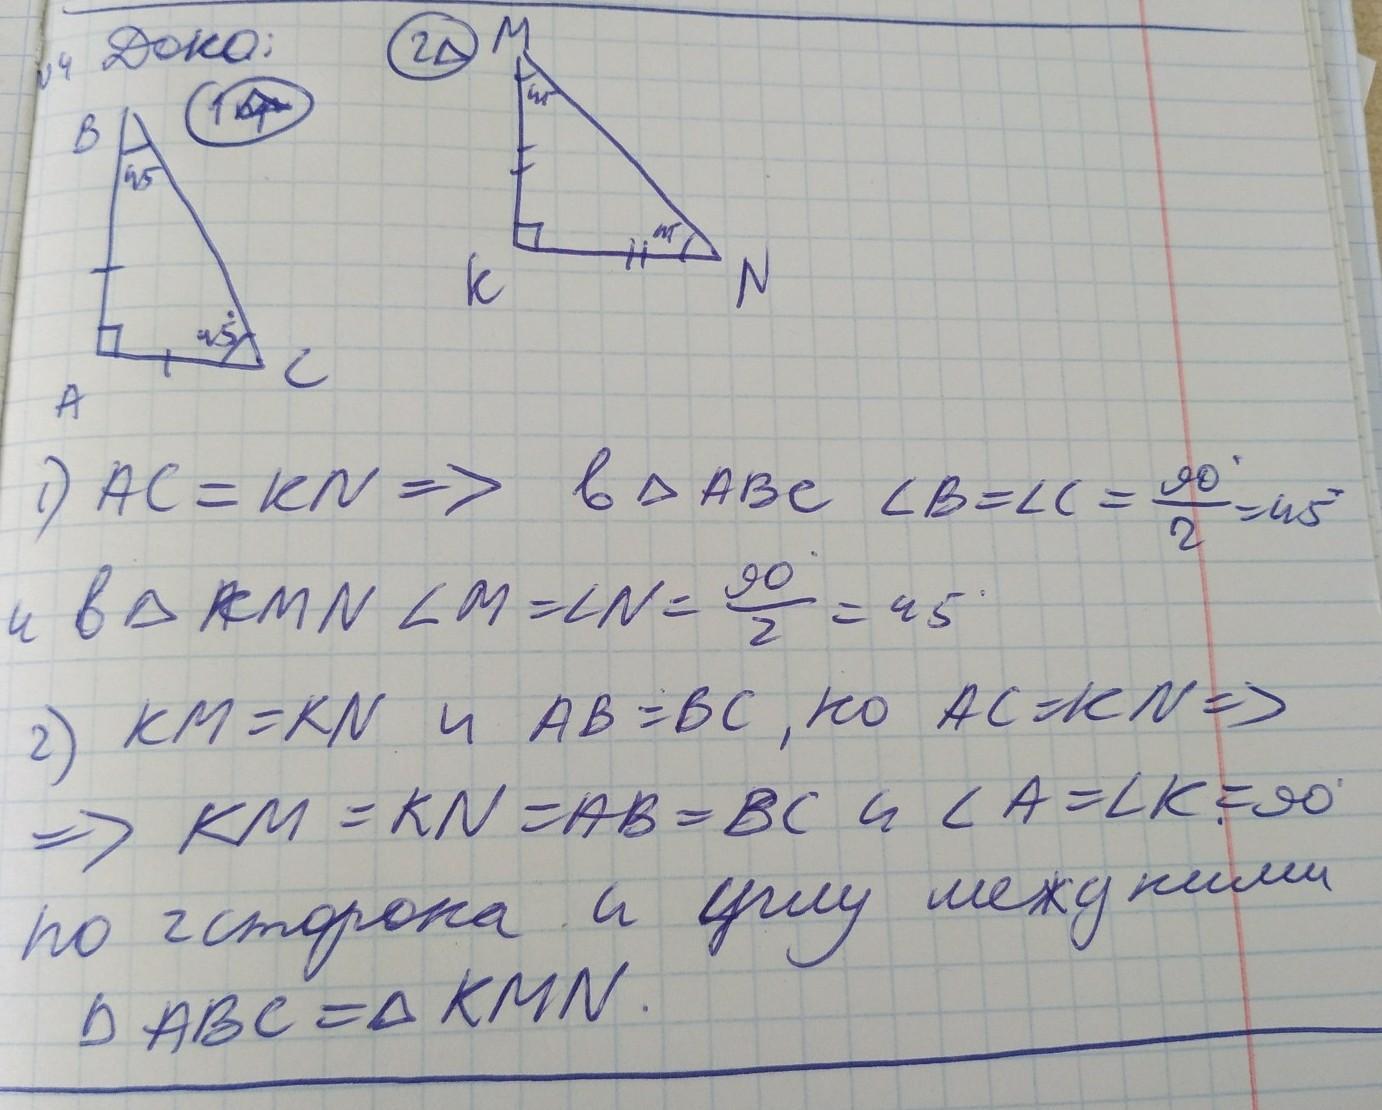 v4 Док-во:
1Δ
2Δ
M
45
K
45
N
B
45
45°
A
C
1) AC = KN => в Δ ABC ∠B = ∠C = 90°/2 = 45°
и в Δ KMN ∠M = ∠N = 90°/2 = 45°
2) KM = KN и AB = BC, но AC = KN =>
=> KM = KN = AB = BC и ∠A = ∠K = 90°
по 2 сторона и углу между ними
Δ ABC = Δ KMN.